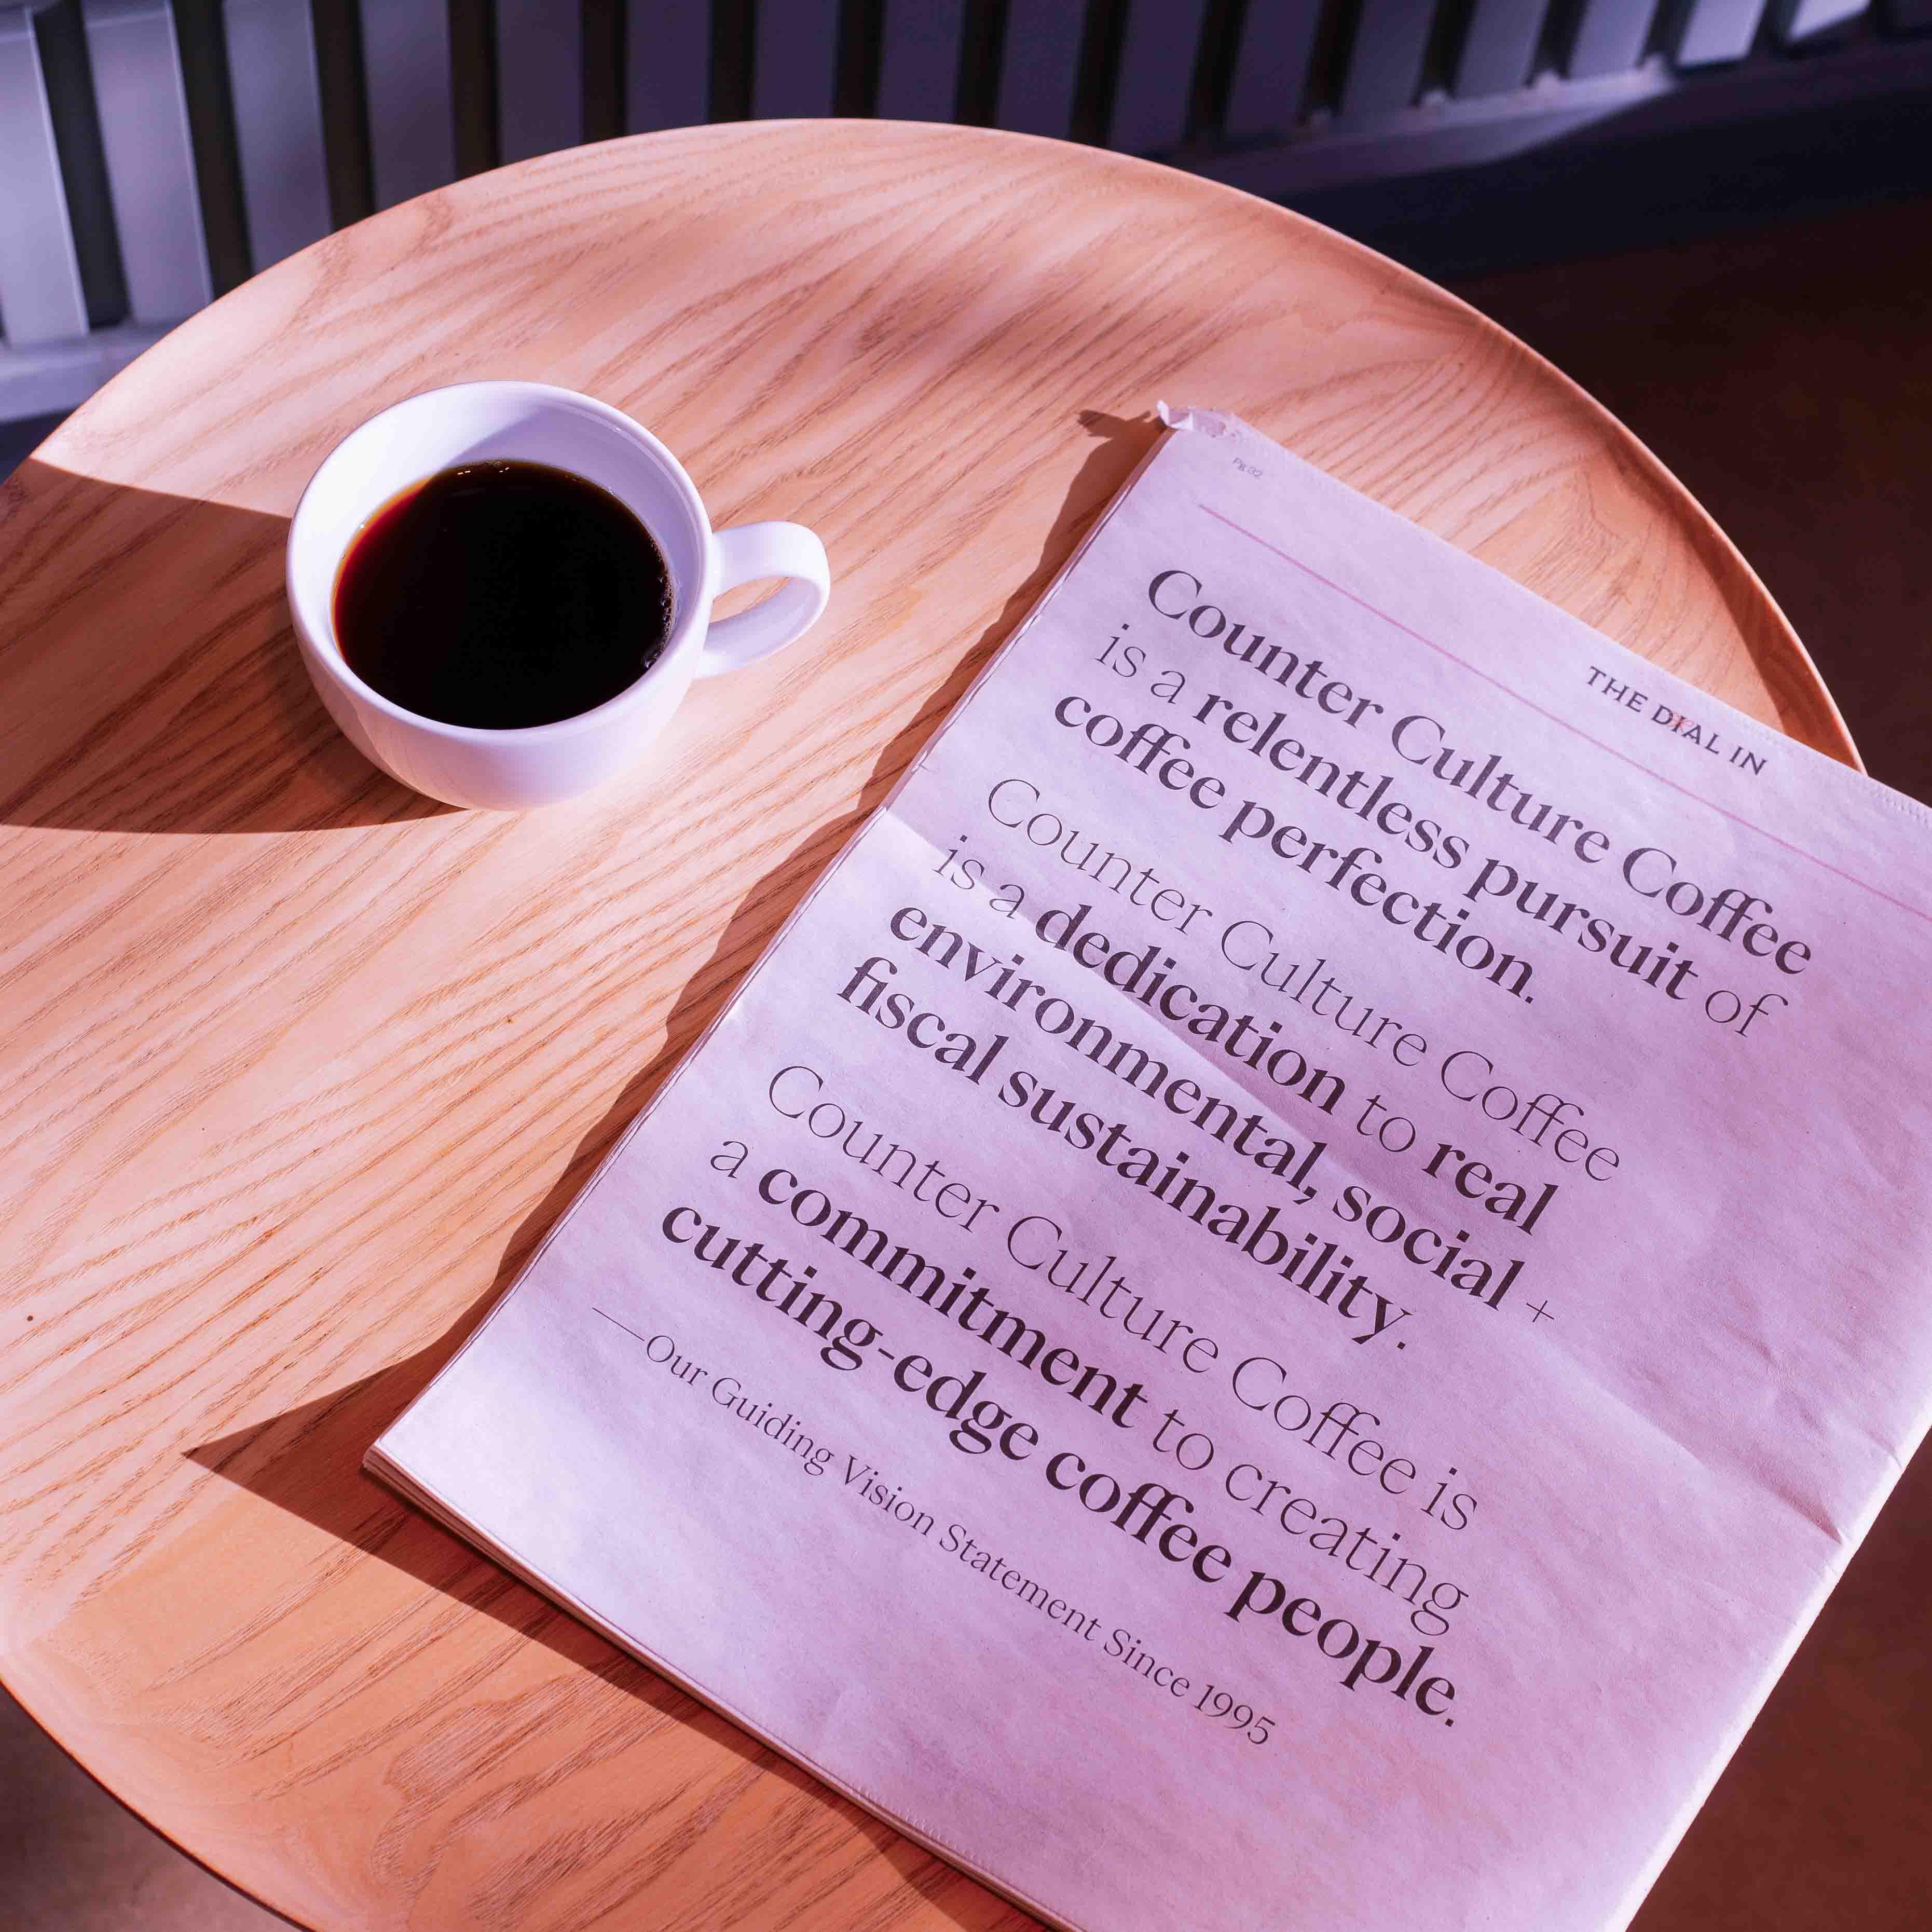 Pg 32
THE DIAL IN
Counter Culture Coffee
is a relentless pursuit of
coffee perfection.
Counter Culture Coffee
is a dedication to real
environmental, social +
fiscal sustainability.
Counter Culture Coffee is
a commitment to creating
cutting-edge coffee people.
—Our Guiding Vision Statement Since 1995